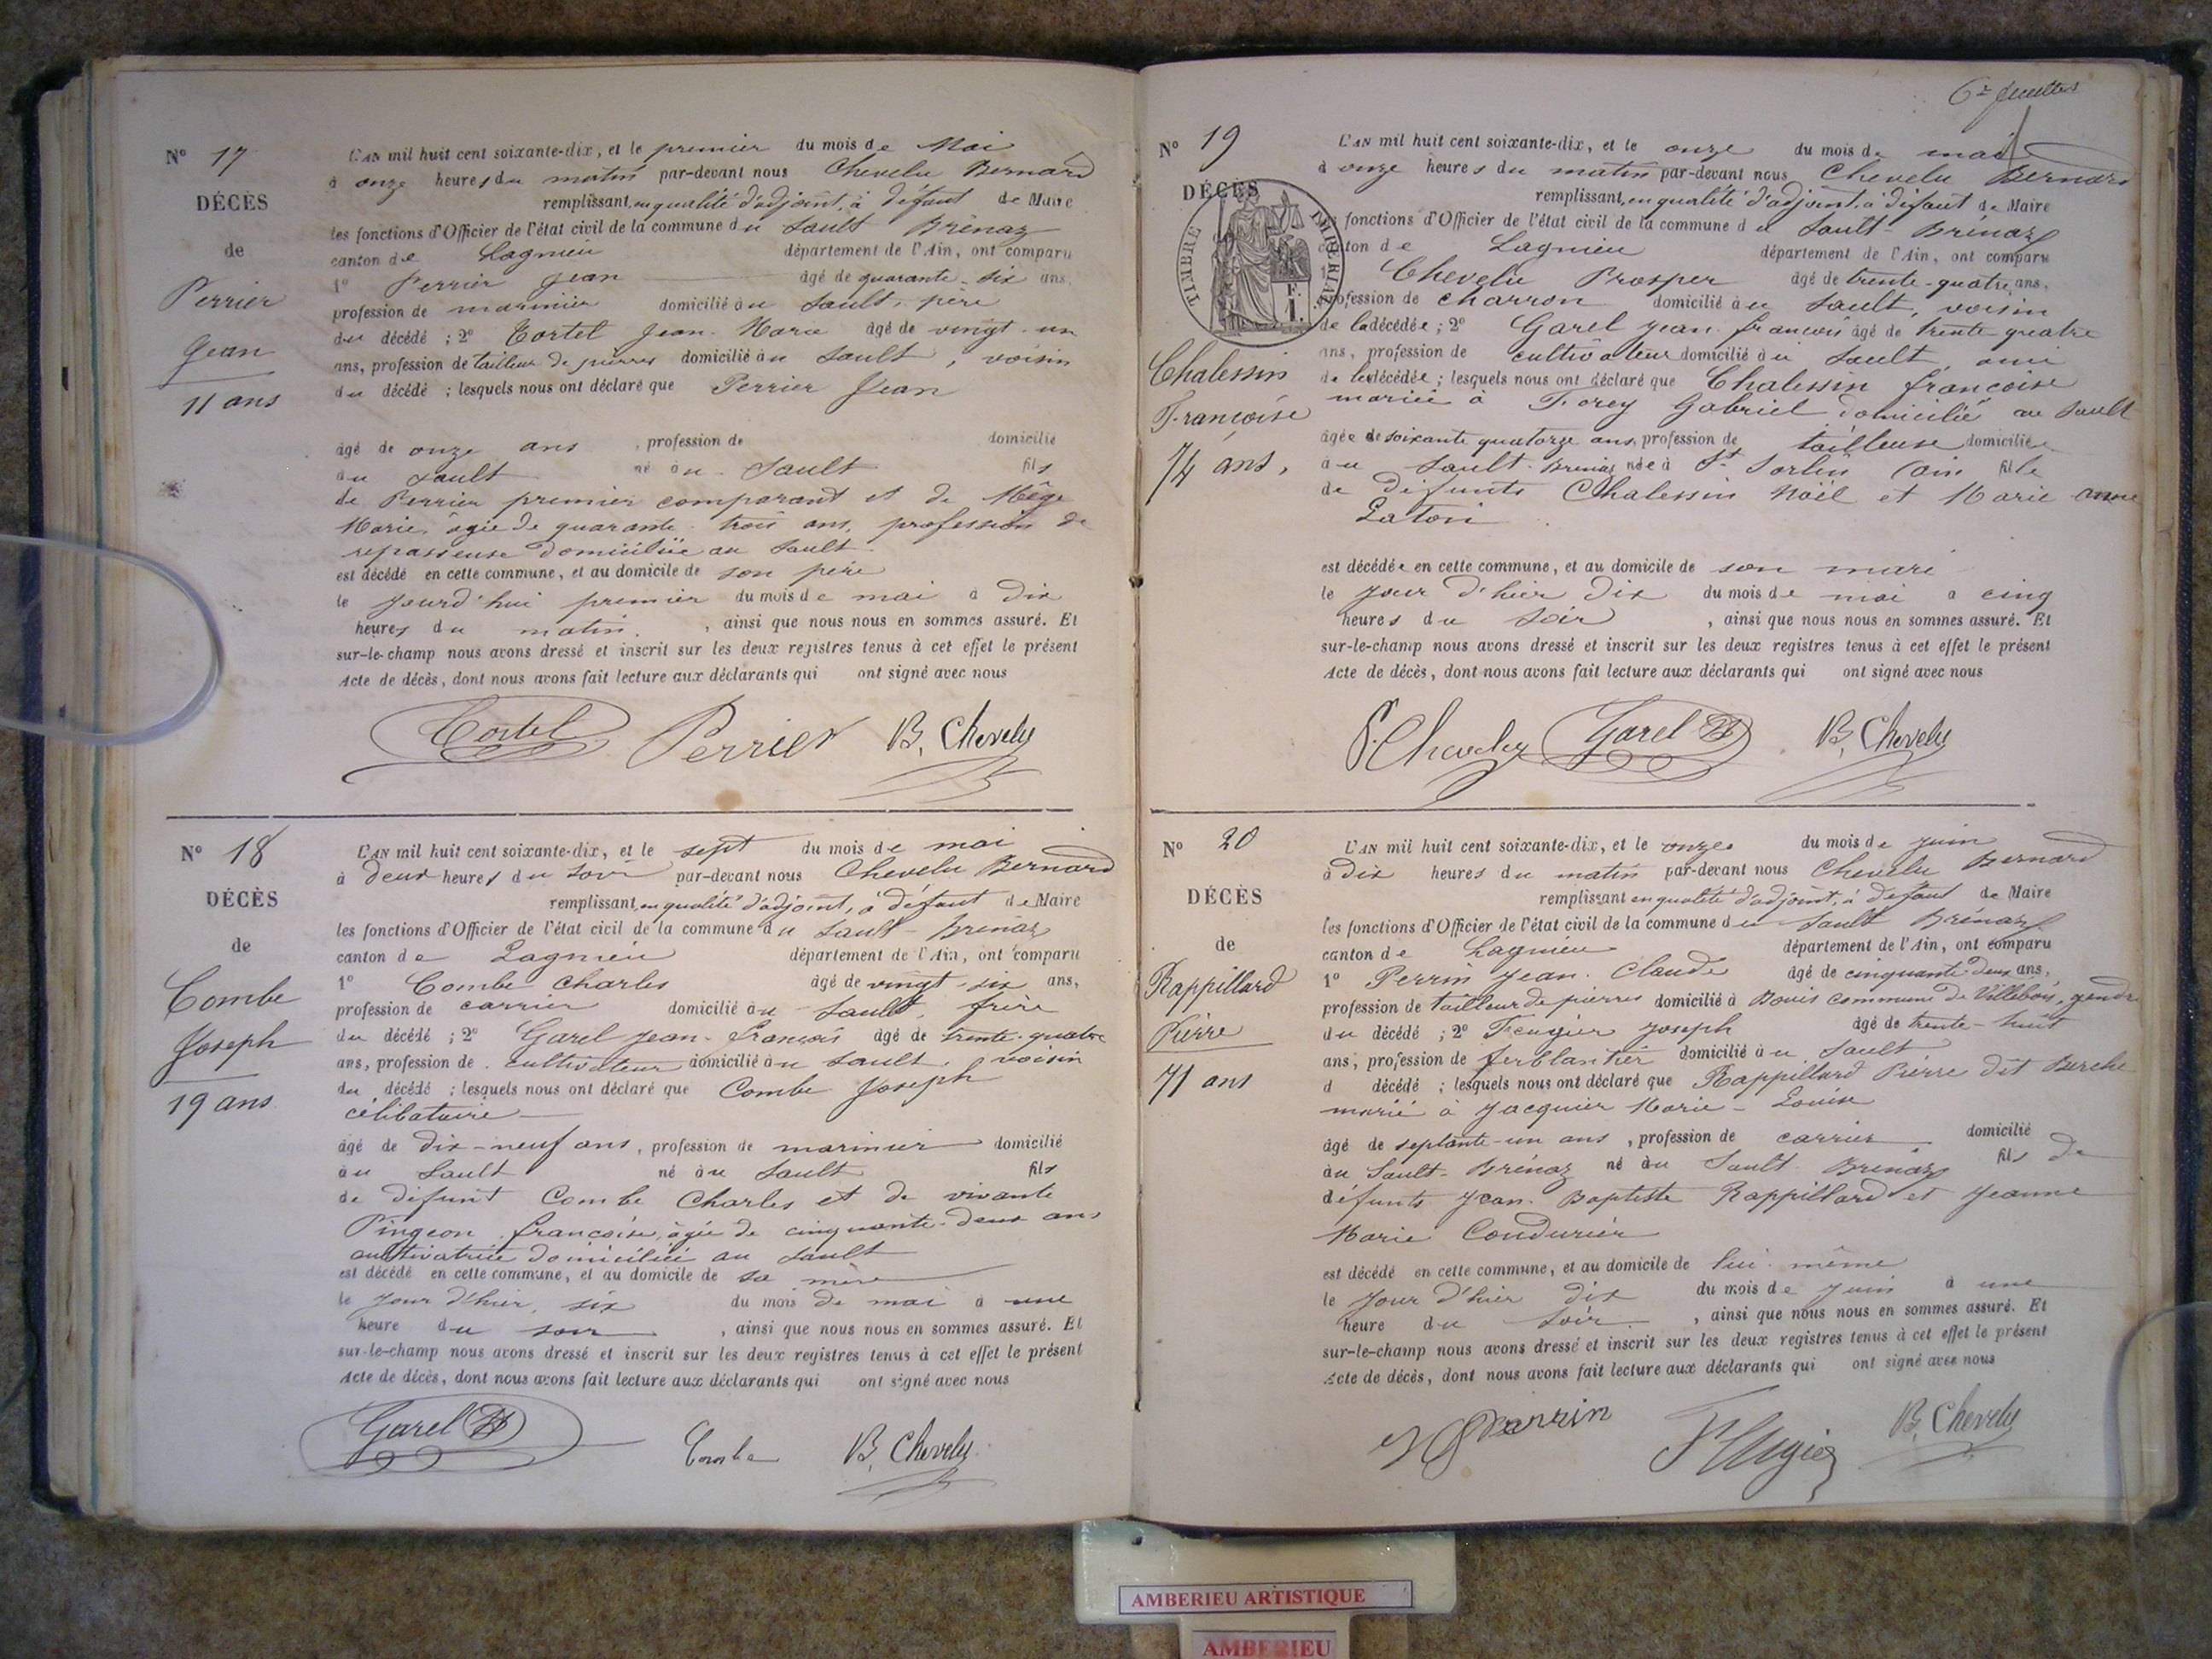 Nº 17
DÉCÈS
de
Perrier
Jean
11 ans
L'AN mil huit cent soixante-dix, et le premier du mois de Mai
à onze heures du matin par-devant nous Chevelu Bernard
remplissant, en qualité d'adjoint, à défaut de Maire
les fonctions d'Officier de l'état civil de la commune du Sault Brénaz
canton de Lagnieu département de l'Ain, ont comparu
1º Perrier Jean âgé de quarante-six ans,
profession de marinier domicilié au Sault, père
du décédé ; 2º Tortel Jean-Marie âgé de vingt-un
ans, profession de tailleur de pierres domicilié au Sault, voisin
du décédé ; lesquels nous ont déclaré que Perrier Jean
âgé de onze ans, profession de domicilié
au Sault né au Sault fils
de Perrier premier comparant et de Mège
Marie, âgée de quarante-trois ans, profession de
repasseuse domiciliée au Sault
est décédé en cette commune, et au domicile de son père
le jourd'hui premier du mois de mai à dix
heures du matin, ainsi que nous nous en sommes assuré. Et
sur-le-champ nous avons dressé et inscrit sur les deux registres tenus à cet effet le présent
Acte de décès, dont nous avons fait lecture aux déclarants qui ont signé avec nous
Tortel Perrier B. Chevelu
Nº 18
DÉCÈS
de
Combe
Joseph
19 ans
L'AN mil huit cent soixante-dix, et le sept du mois de mai
à deux heures du soir par-devant nous Chevelu Bernard
remplissant, en qualité d'adjoint, à défaut de Maire
les fonctions d'Officier de l'état civil de la commune du Sault-Brénaz
canton de Lagnieu département de l'Ain, ont comparu
1º Combe Charles âgé de vingt-six ans,
profession de carrier domicilié au Sault, frère
du décédé ; 2º Garel Jean-François âgé de trente-quatre
ans, profession de cultivateur domicilié au Sault, voisin
du décédé ; lesquels nous ont déclaré que Combe Joseph
célibataire
âgé de dix-neuf ans, profession de marinier domicilié
au Sault né au Sault fils
de défunt Combe Charles et de vivante
Pingeon françoise, âgée de cinquante-deux ans
cultivatrice domiciliée au Sault
est décédé en cette commune, et au domicile de sa mère
le jour d'hier, six du mois de mai à une
heure du soir, ainsi que nous nous en sommes assuré. Et
sur-le-champ nous avons dressé et inscrit sur les deux registres tenus à cet effet le présent
Acte de décès, dont nous avons fait lecture aux déclarants qui ont signé avec nous
Garel Combe B. Chevelu
Nº 19
DÉCÈS
TIMBRE IMPERIAL
F. 1.
Chalessin
Françoise
74 ans,
L'AN mil huit cent soixante-dix, et le onze du mois de mai
à onze heures du matin par-devant nous Chevelu Bernard
remplissant, en qualité d'adjoint, à défaut de Maire
fonctions d'Officier de l'état civil de la commune du Sault-Brénaz
canton de Lagnieu département de l'Ain, ont comparu
Chevelu Prosper âgé de trente-quatre ans,
profession de charron domicilié au Sault, voisin
de la décédée ; 2º Garel Jean-françois âgé de trente quatre
ans, profession de cultivateur domicilié au Sault, ami
de la décédée ; lesquels nous ont déclaré que Chalessin françoise
mariée à Forey Gabriel domiciliée au Sault
âgée de soixante quatorze ans, profession de tailleuse domiciliée
au Sault-Brénaz née à St Sorlin (ain fille
de défunts Chalessin Noël et Marie anne
est décédée en cette commune, et au domicile de son mari
le jour d'hier dix du mois de mai à cinq
heures du soir, ainsi que nous nous en sommes assuré. Et
sur-le-champ nous avons dressé et inscrit sur les deux registres tenus à cet effet le présent
Acte de décès, dont nous avons fait lecture aux déclarants qui ont signé avec nous
P. Chevelu Garel B. Chevelu
Nº 20
DÉCÈS
de
Rappillard
Pierre
71 ans
L'AN mil huit cent soixante-dix, et le onze du mois de juin
à dix heures du matin par-devant nous Chevelu Bernard
remplissant en qualité d'adjoint, à défaut de Maire
les fonctions d'Officier de l'état civil de la commune du Sault Brénaz
canton de Lagnieu département de l'Ain, ont comparu
1º Perrin Jean-Claude âgé de cinquante deux ans,
profession de tailleur de pierres domicilié à Bouis commune de Villebois, gendre
du décédé ; 2º Feugier Joseph âgé de trente-huit
ans, profession de ferblantier domicilié au Sault
d décédé ; lesquels nous ont déclaré que Rappillard Pierre dit Berche
marié à Jacquier Marie-Louise
âgé de septante-un ans, profession de carrier domicilié
au Sault-Brénaz né au Sault Brénaz fils de
défunts Jean-Baptiste Rappillard et Jeanne
Marie Condurier
est décédé en cette commune, et au domicile de lui-même
le jour d'hier dix du mois de juin à une
heure du soir, ainsi que nous nous en sommes assuré. Et
sur-le-champ nous avons dressé et inscrit sur les deux registres tenus à cet effet le présent
Acte de décès, dont nous avons fait lecture aux déclarants qui ont signé avec nous
Perrin Feugier B. Chevelu
AMBERIEU ARTISTIQUE
AMBERIEU